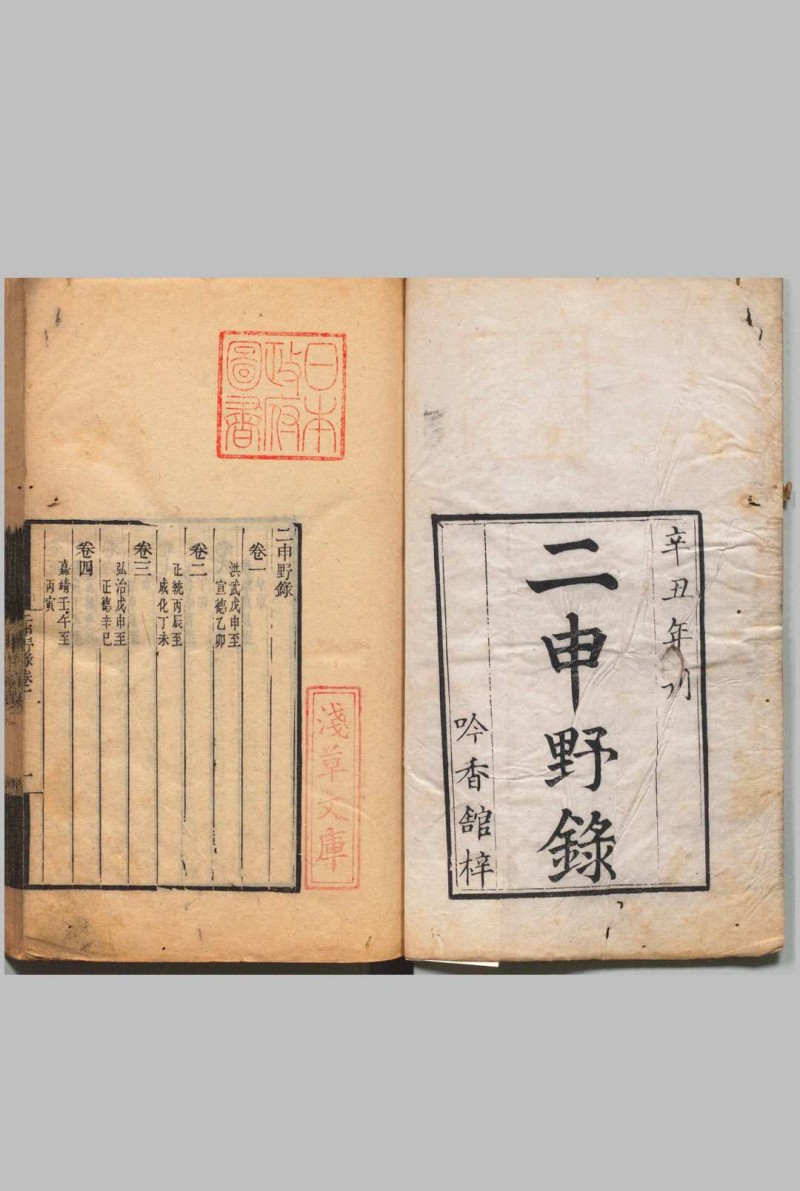 辛丑年刊
二申野錄
吟香館梓
日本
政府
圖書
二申野錄
卷一
洪武戊申至
宣德乙卯
卷二
正統丙辰至
成化丁未
卷三
弘治戊申至
正德辛巳
卷四
嘉靖壬午至
丙寅
淺草文庫
二申野錄卷
一